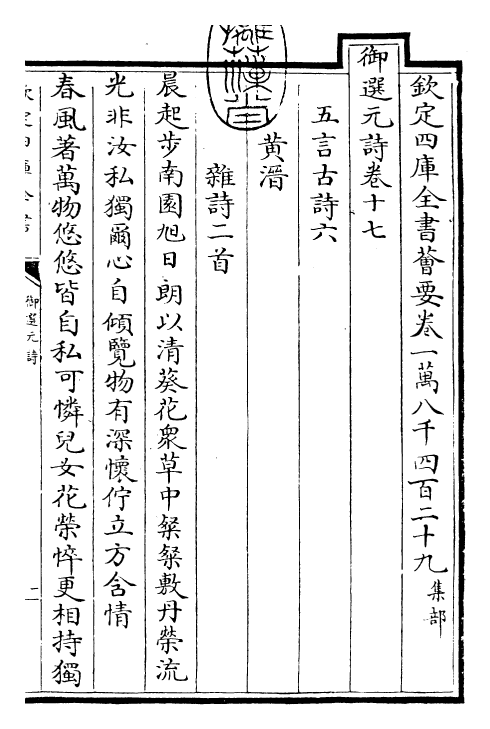 欽定四庫全書薈要卷一萬八千四百二十九集部
御選元詩卷十七
五言古詩六
黄溍
雜詩二首
晨起步南園旭日朗以清葵花衆草中粲粲敷丹榮流
光非汝私獨爾心自傾覽物有深懷佇立方含情
春風著萬物悠悠皆自私可憐兒女花榮悴更相持獨
御選元詩